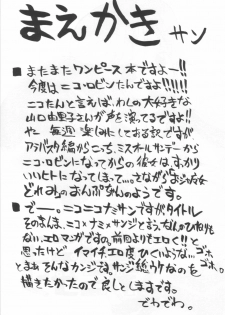 まえかき サン
■またまたワンピース本ですよー!!
今度はニコ・ロビンたんですよ!!!!!!
ニコたんと言えば、わしの大好きな
山口由里子さんが声を演てるですよ!!
やー 毎週楽しみにしてある訳ですが
アラバスタ編からこっち、ミスオールサンデーから
ニコ・ロビンになってからの彼女は、すっかり
いいヒトになってしまって…、さながらおジャ魔女
どれみのおんぷちゃんのようです。
■でー。ニコニコナミサンですがタイトル
そのまんま、ニコ×ナミ×サンジと言う、なんのひねりも
ない、エロマンガです。前回よりエロく!!と
思ったけど イマイチ、エロ度ひくいような…ゴホ、ゴホ。
とまぁそんなカンジです。サンジ総ウケなのを
描きたかったので良しとしますです。
でわでわ。